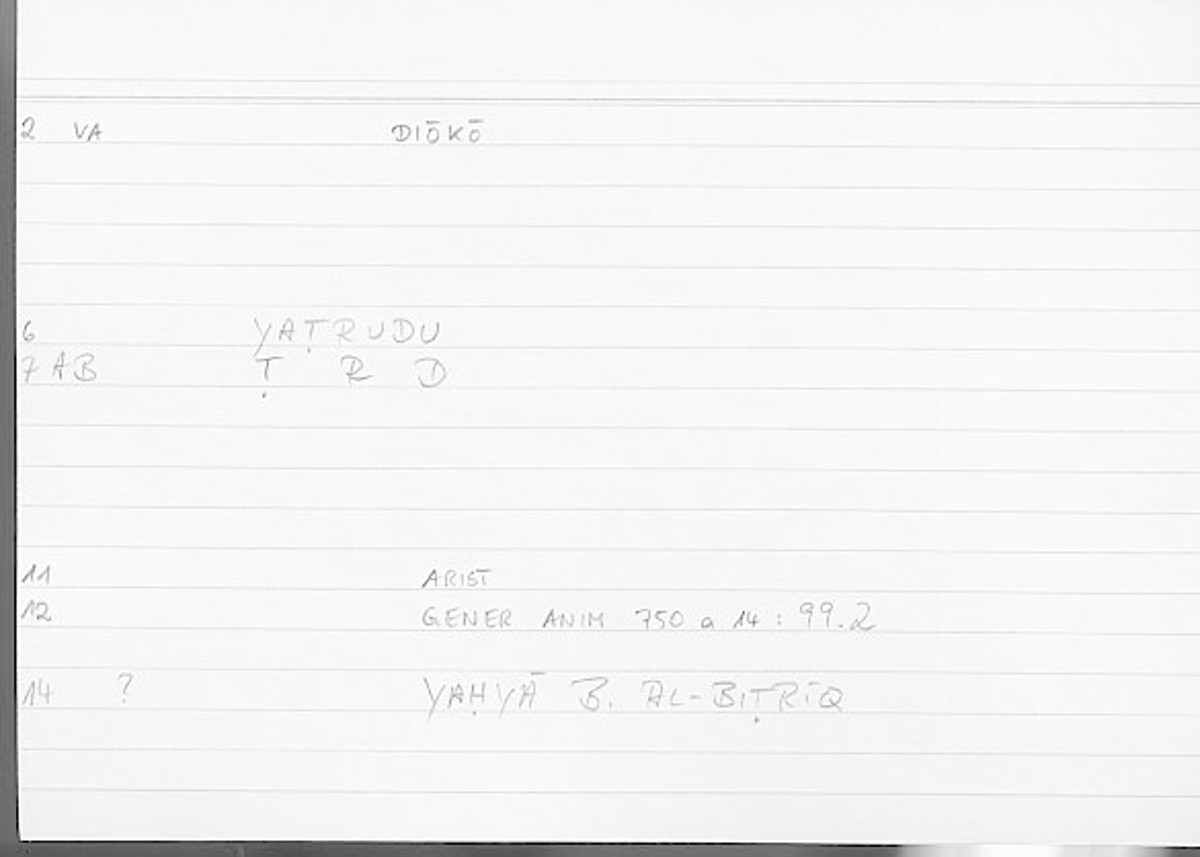 2 VA DIŌKŌ
6 YAṬRUDU
7 AB Ṭ R D
11 ARIST
12 GENER ANIM 750 a 14 : 99.2
14 ? YAḤYĀ B. AL-BIṬRĪQ